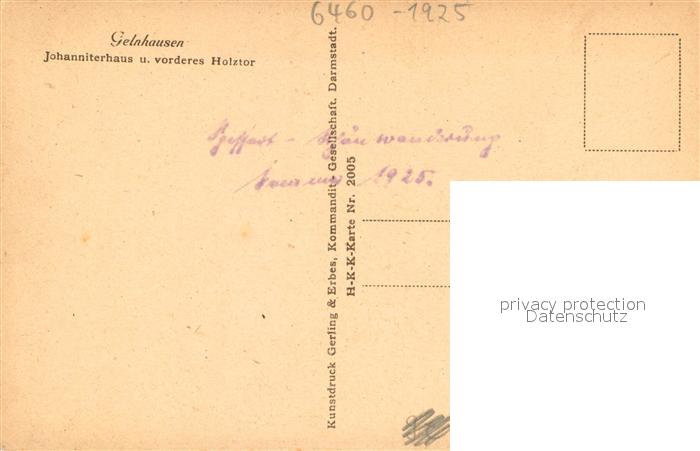 6460 - 1925
Gelnhausen
Johanniterhaus u. vorderes Holztor
Spessart - Rhönwanderung
Sommer 1925.
Kunstdruck Gerling & Erbes, Kommandit-Gesellschaft. Darmstadt.
H-K-K-Karte Nr. 2005
privacy protection
Datenschutz